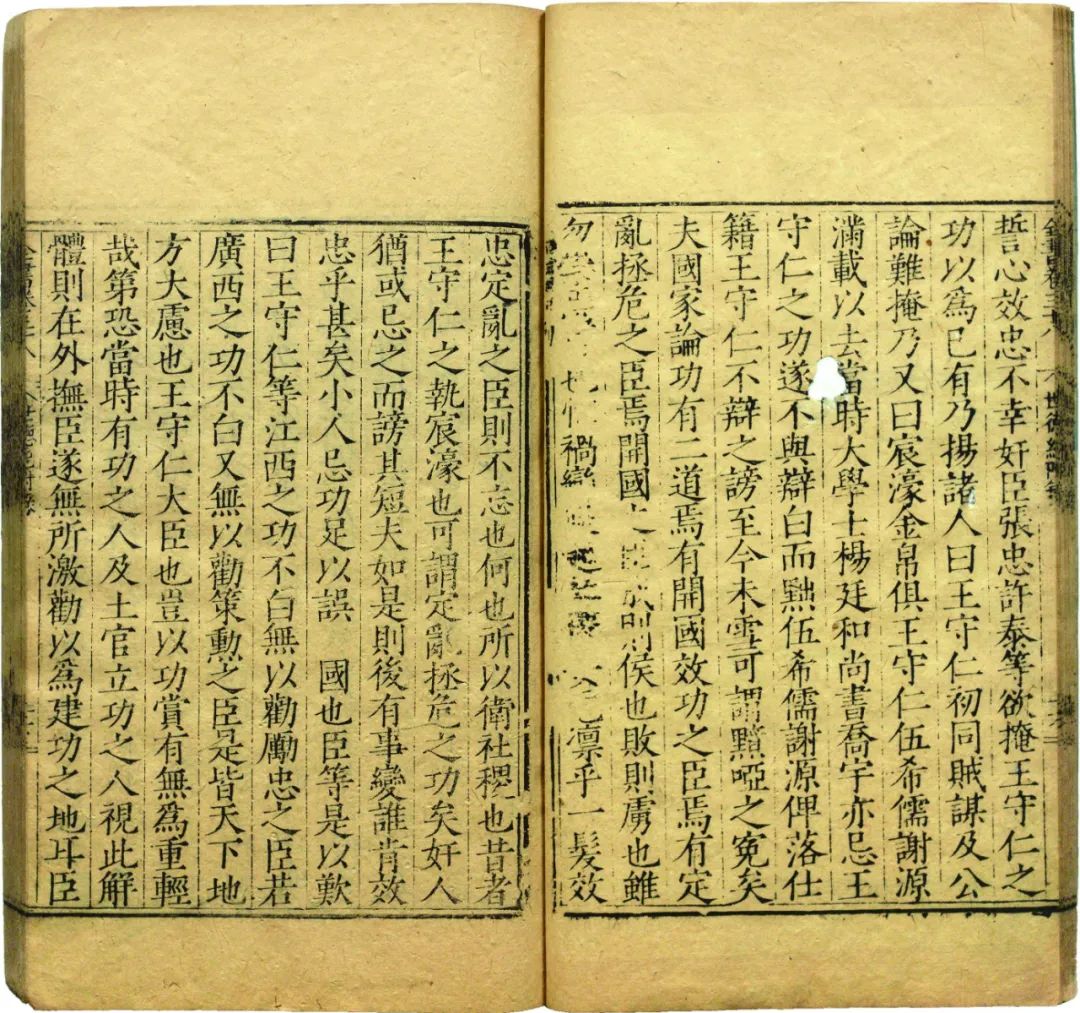 誓心效忠不幸奸臣張忠許泰等欲掩王守仁之
功以爲已有乃揚諸人曰王守仁初同賊謀及公
論難掩乃又曰宸濠金帛俱王守仁伍希儒謝源
滿載以去當時大學士楊廷和尚書喬宇亦忌王
守仁之功遂不與辯白而黜伍希儒謝源俾落仕
籍王守仁不辯之謗至今未雪可謂黯啞之冤矣
夫國家論功有二道焉有開國效功之臣焉有定
亂拯危之臣焉開國之臣成則侯也敗則虜也雖
勿禍凛乎一髮效
忠定亂之臣則不忘也何也所以衛社稷也昔者
王守仁之執宸濠也可謂定亂拯危之功矣奸人
猶或忌之而謗其短夫如是則後有事變誰肯效
忠乎甚矣小人忌功足以誤　國也臣等是以歎
曰王守仁等江西之功不白無以勸勵忠之臣若
廣西之功不白又無以勸策勳之臣是皆天下地
方大慮也王守仁大臣也豈以功賞有無爲重輕
哉第恐當時有功之人及土官立功之人視此解
體則在外撫臣遂無所激勸以爲建功之地耳臣